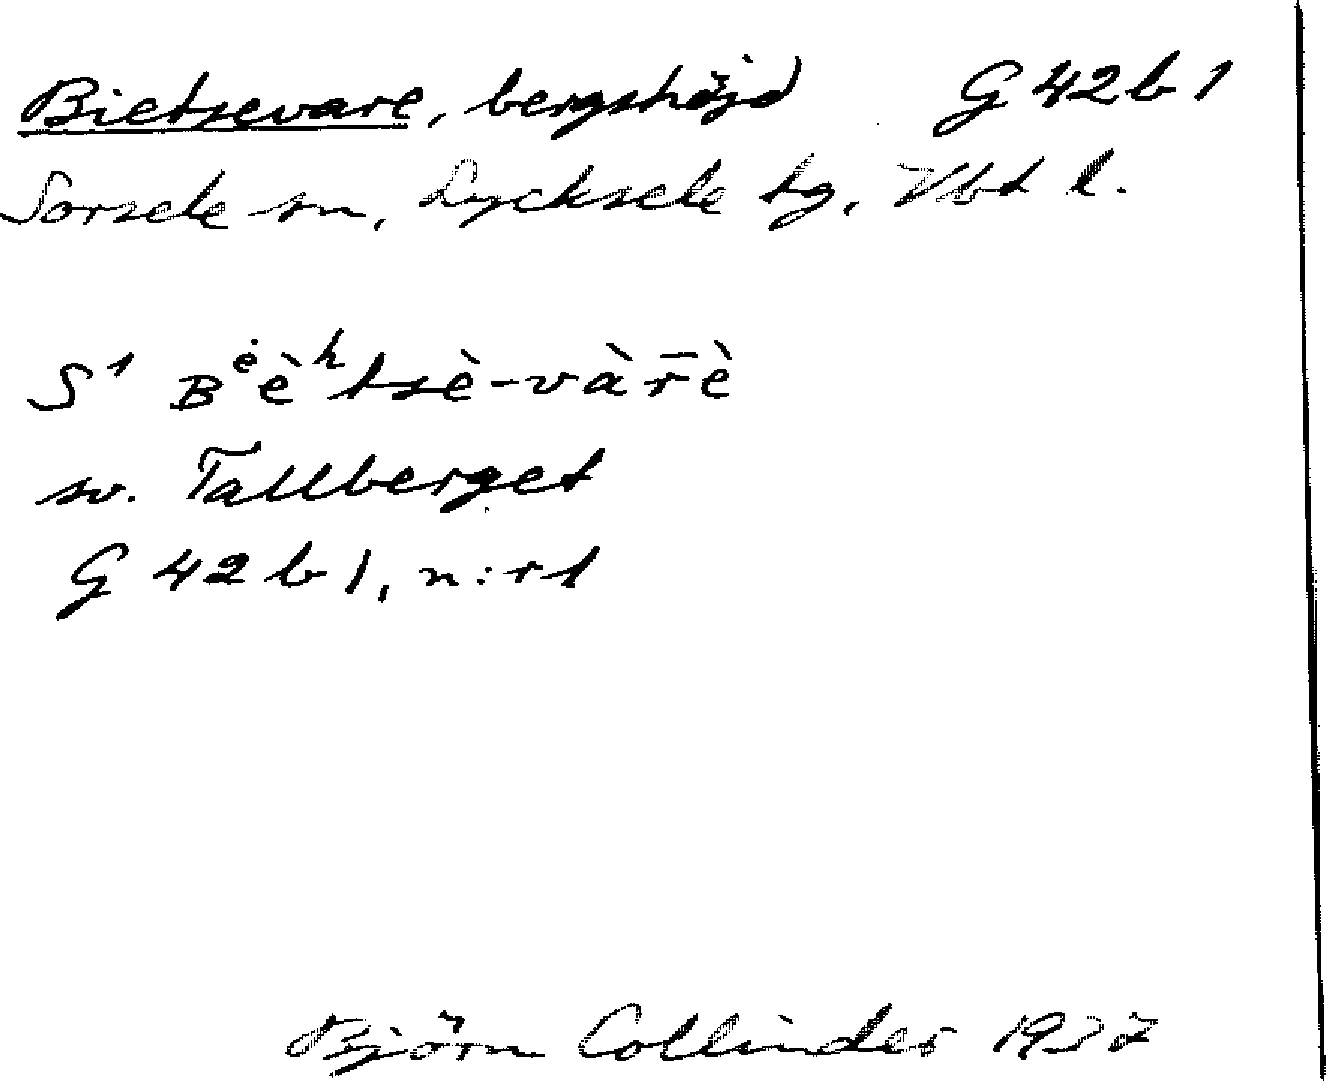 Bietsevare, bergshöjd G 42 b 1
Sorsele sn, Lycksele lg, Vbt l.
S¹ Bᵉ̇èʰtsè-vàr̄è
sv. Tallberget
G 42 b 1, n:r 1
Björn Collinder 1937